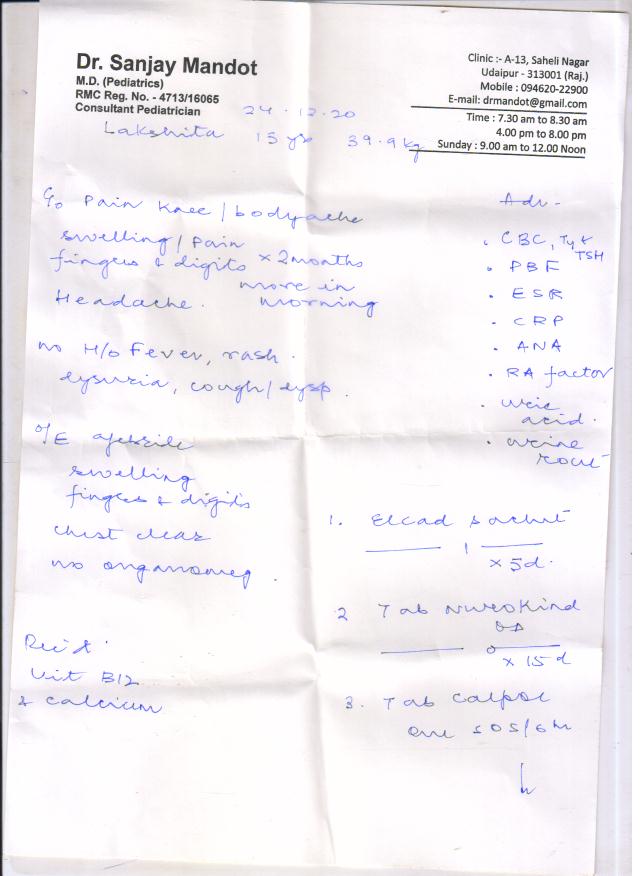 Dr. Sanjay Mandot
M.D. (Pediatrics)
RMC Reg. No. - 4713/16065
Consultant Pediatrician
Clinic :- A-13, Saheli Nagar
Udaipur - 313001 (Raj.)
Mobile : 094620-22900
E-mail: drmandot@gmail.com
Time : 7.30 am to 8.30 am
4.00 pm to 8.00 pm
Sunday : 9.00 am to 12.00 Noon
24.12.20
Lakshita 15 yr 39.9 kg
C/o Pain Knee / bodyache
swelling / Pain
fingers & digits x 2 months
more in
morning
Headache.
no H/o Fever, rash.
dysuria, cough / dysp.
O/E afebrile
swelling
fingers & digits
chest clear
no organomeg.
Rec'd
Vit B12
& calcium
Adv-
. CBC, T4 &
TSH
. PBF
. ESR
. CRP
. ANA
. RA factor
. uric
acid.
. urine
rout
1. Elcad sachet
1
x 5 d.
2 Tab Nurokind
x 15 d
3. Tab Calpol
one SOS/6 hr